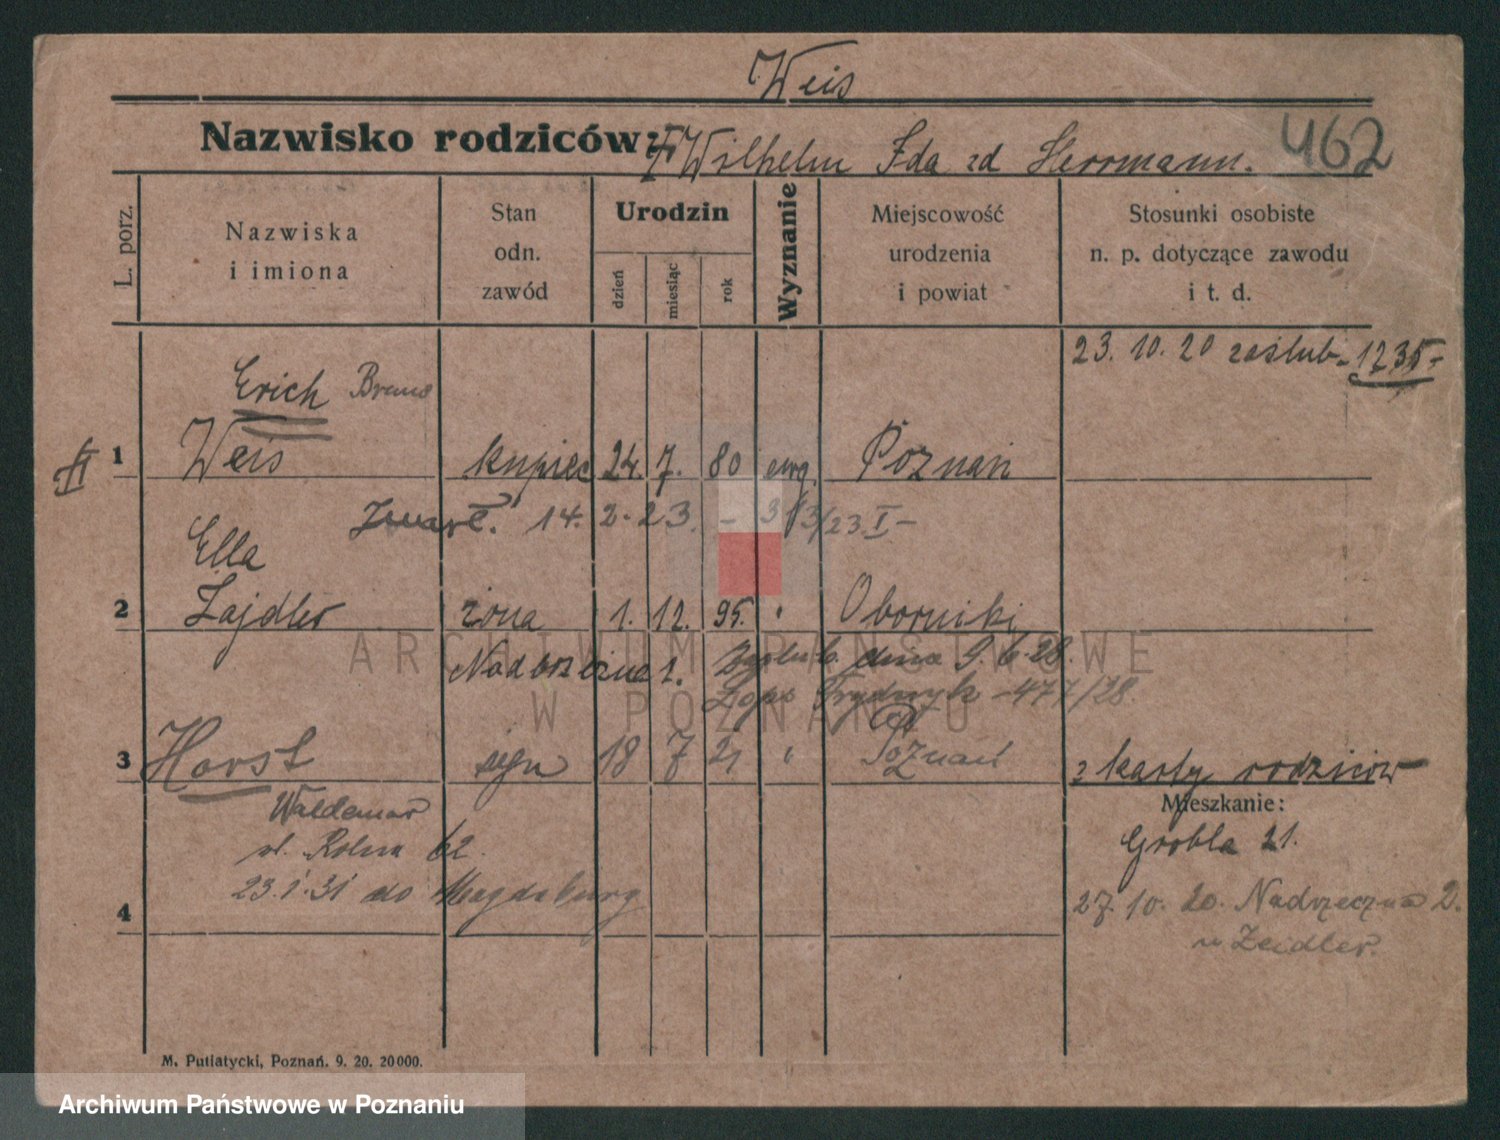 Weis
Nazwisko rodziców: Wilhelm Ida zd Herrmann.
462
L. porz.
Nazwiska
i imiona
Stan
odn.
zawód
Urodzin
dzień
miesiąc
rok
Wyznanie
Miejscowość
urodzenia
i powiat
Stosunki osobiste
n. p. dotyczące zawodu
i t. d.
23. 10. 20 zaślub. 1235-
Erich Bruno
1 Weis kupiec 24. 7. 80 ewg. Poznań
Zmarł. 14. 2. 23. - 313/23. I -
Ella
2 Zajdler żona 1. 12. 95. " Oborniki
Nadrzeczna 2. dnia 9. 6. 28.
Fryderyk - 477/28.
3 Horst syn 18 7 21 " Poznań
z karty rodziców
Waldemar
Mieszkanie:
ul. Rolna 62.
Grobla 21.
23. 1. 31 do Magdeburg
27. 10. 20. Nadrzeczna 2.
4
u Zeidler.
M. Putiatycki, Poznań. 9. 20. 20000.
ARCHIWUM PAŃSTWOWE
W POZNANIU
Archiwum Państwowe w Poznaniu